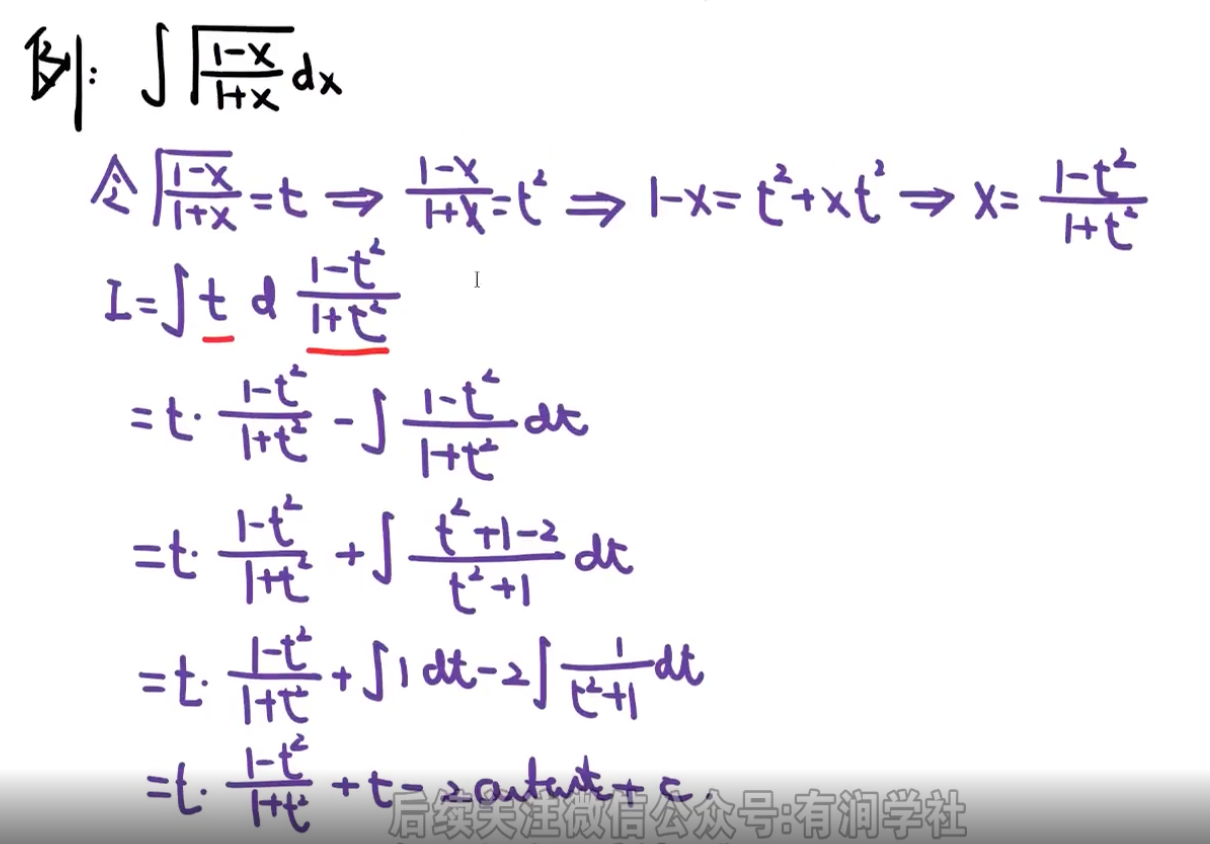 例: ∫√((1-x)/(1+x)) dx
令 √((1-x)/(1+x)) = t ⇒ (1-x)/(1+x) = t² ⇒ 1-x = t²+xt² ⇒ x = (1-t²)/(1+t²)
I = ∫ t d (1-t²)/(1+t²)
= t· (1-t²)/(1+t²) - ∫ (1-t²)/(1+t²) dt
= t· (1-t²)/(1+t²) + ∫ (t²+1-2)/(t²+1) dt
= t· (1-t²)/(1+t²) + ∫ 1 dt - 2∫ 1/(t²+1) dt
= t· (1-t²)/(1+t²) + t - 2arctant + c.
后续关注微信公众号:有润学社